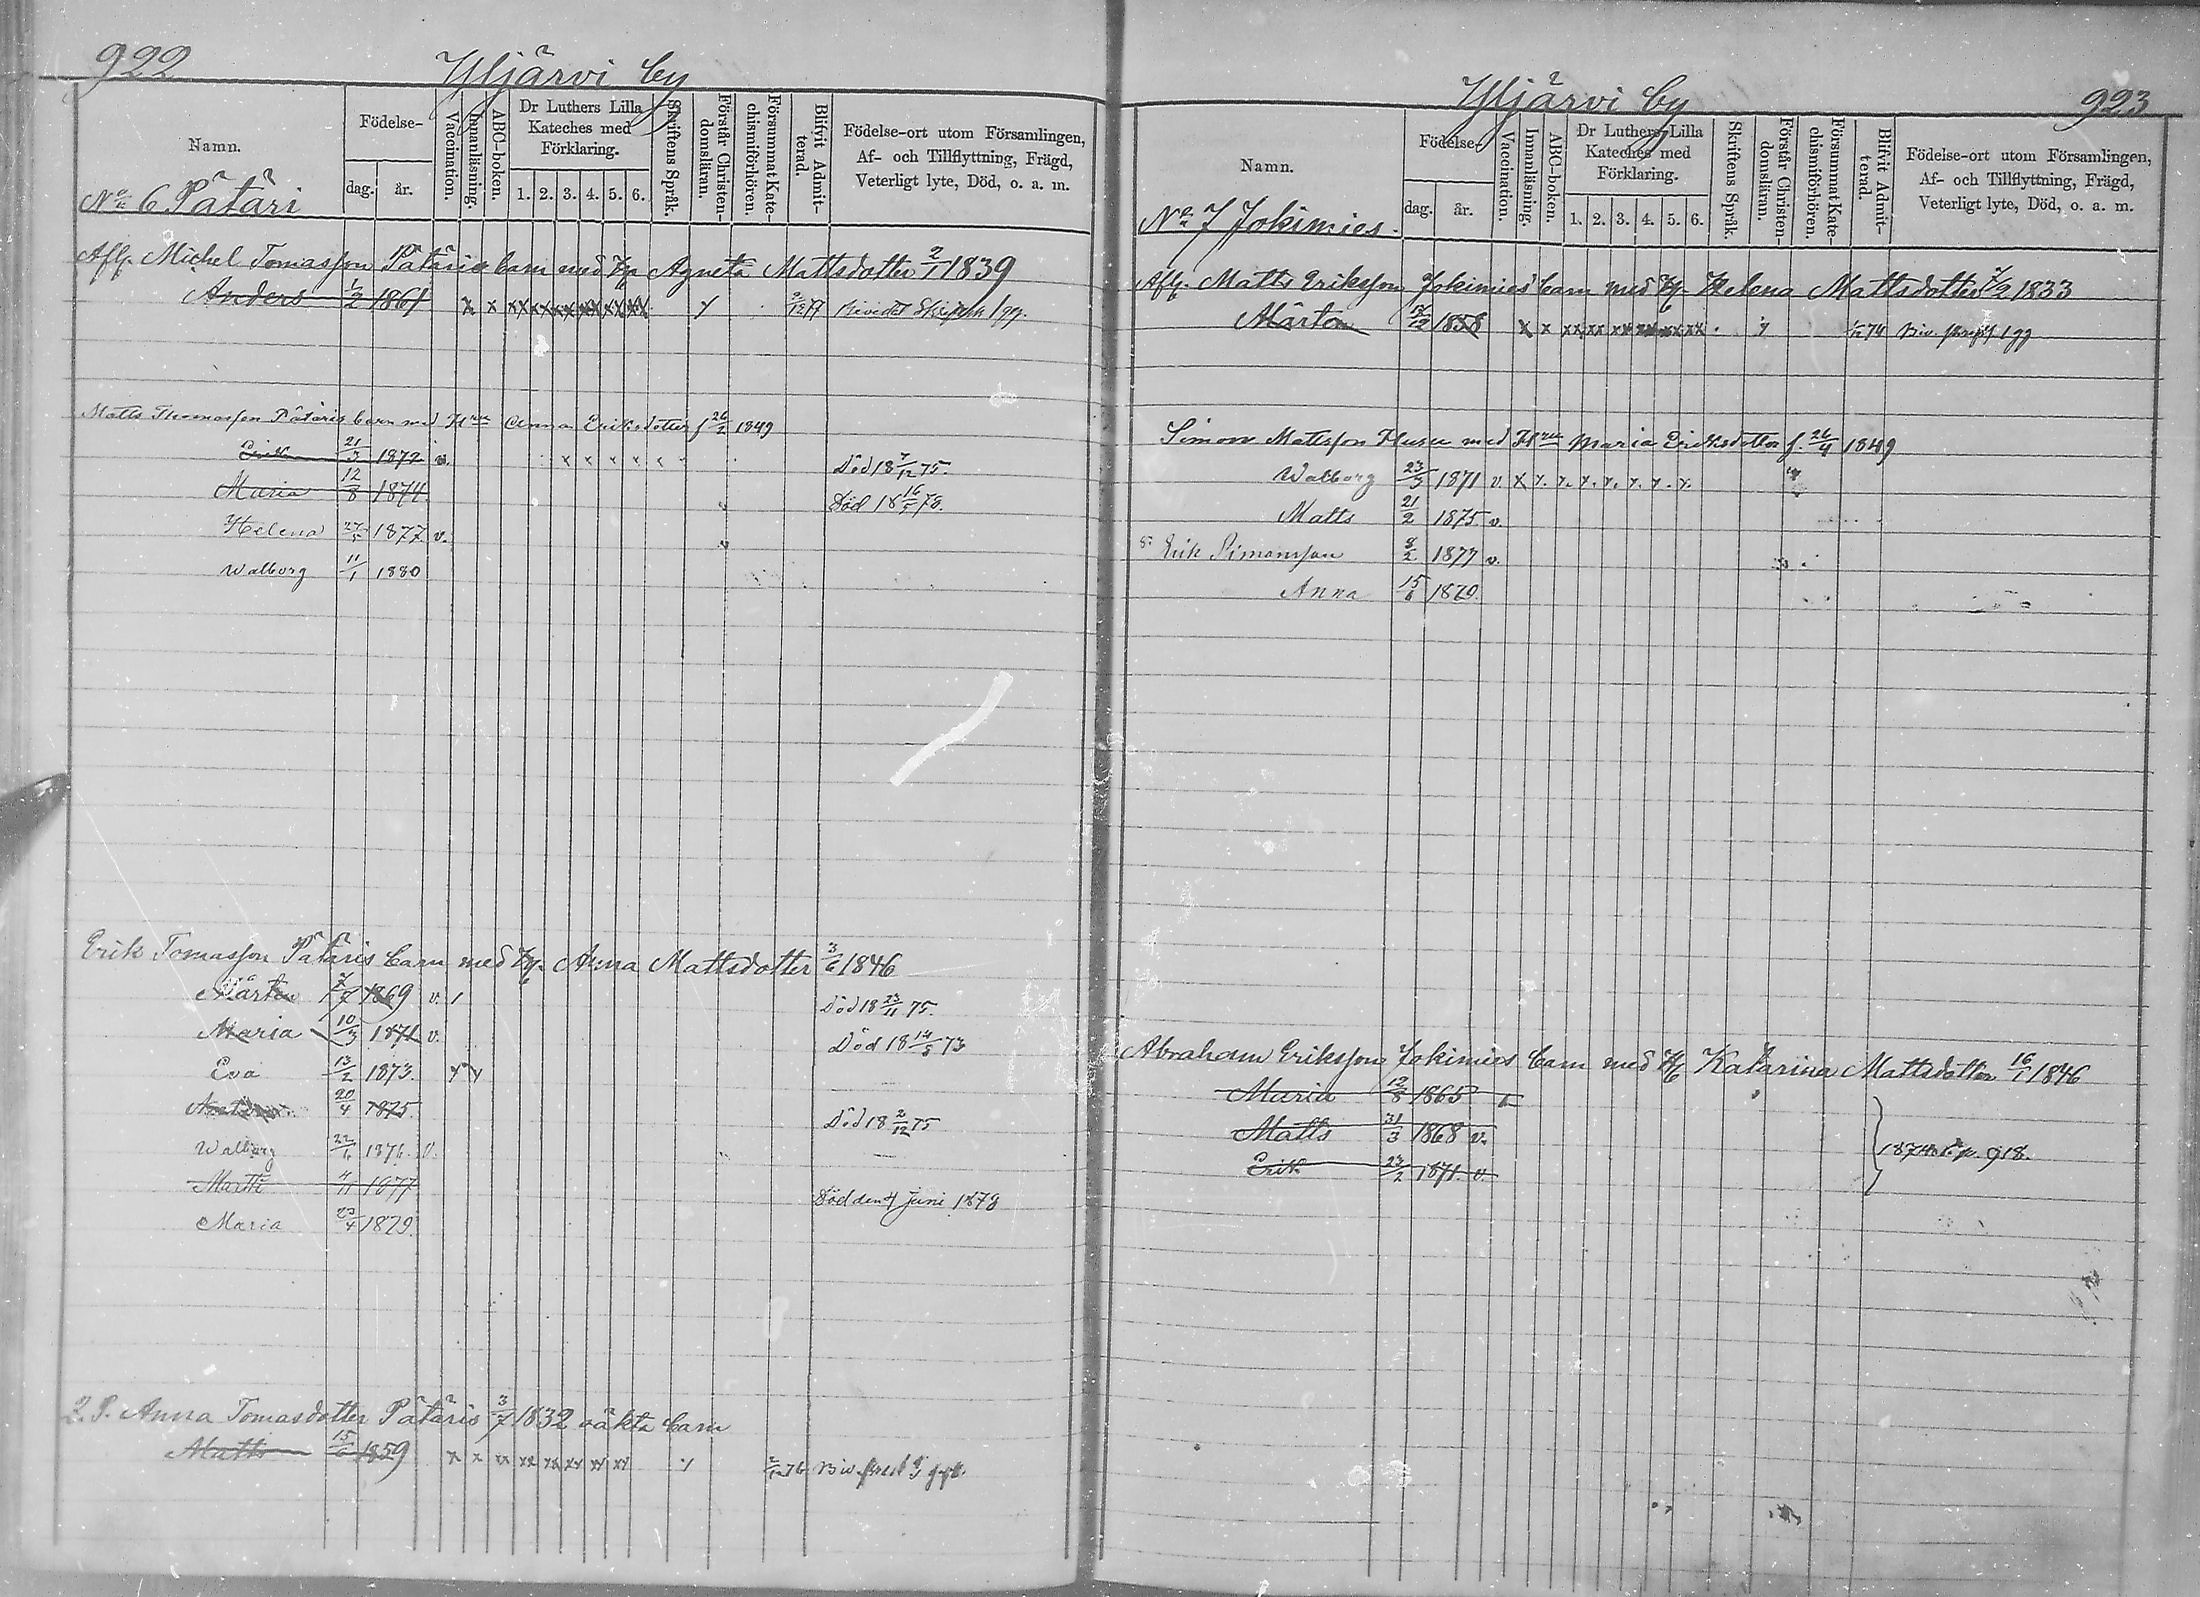 922
Yljärvi by
Namn.
Födelse-
dag. år.
Vaccination.
Innanläsning.
ABC-boken.
Dr Luthers Lilla Kateches med Förklaring.
1. 2. 3. 4. 5. 6.
Skriftens Språk.
Förstår Christen-domsläran.
Försummat Kate-chismiförhören.
Blifvit Admit-terad.
Födelse-ort utom Församlingen,
Af- och Tillflyttning, Frägd,
Veterligt lyte, Död, o. a. m.
No 6 Pätäri
Afl. Michel Tomasson Pätäris barn med H. Agneta Mattsdotter 2/1 1839
Anders 1/2 1861 x x xx xx xx xx xx xx y
Matts Thomasson Pätäris barn med Hru Anna Eriksdotter f 26/2 1849
Erik 21/3 1872 v. x x x x x Död 18 7/12 75.
Maria 12/8 1874 Död 18 16/5 78.
Helena 27/5 1877 v.
Walborg 11/1 1880
Erik Tomasson Pätäris barn med H. Anna Mattsdotter 3/6 1846
Mårten 1869 v. Död 18 23/11 75.
Maria 10/3 1871 v. Död 18 14/8 73
Eva 13/2 1873. y y
20/4 1875. Död 18 2/12 75
Walborg 22/6 1876. v.
4/11 1877 Död den 4 Juni 1878
Maria 23/4 1879.
Anna Tomasdotter Pätäris 3/7 1832 oäkta barn
Matts 15/6 1859 x x xx xx xx xx xx xx y
923
Yljärvi by
Namn.
Födelse-
dag. år.
Vaccination.
Innanläsning.
ABC-boken.
Dr Luthers Lilla Kateches med Förklaring.
1. 2. 3. 4. 5. 6.
Skriftens Språk.
Förstår Christen-domsläran.
Försummat Kate-chismiförhören.
Blifvit Admit-terad.
Födelse-ort utom Församlingen,
Af- och Tillflyttning, Frägd,
Veterligt lyte, Död, o. a. m.
No 7 Jokimies.
Afl. Matts Eriksson Jokimies barn med H. Helena Mattsdotter 1833
Mårten 1858 x x xx xx xx xx xx xx y
Simon Mattsson Husu med Hru Maria Eriksdotter f. 26/4 1849
Walborg 23/3 1871 v. x y. y. y. y. y. y.
Matts 21/2 1875 v.
Erik Simonsson 8/2 1877 v.
Anna 15/6
Abraham Eriksson Jokimies barn med H. Katarina Mattsdotter 16/1 1846
Maria 12/8 1865
Matts 31/3 1868 v.
Erik 23/2 1871. v. 918.